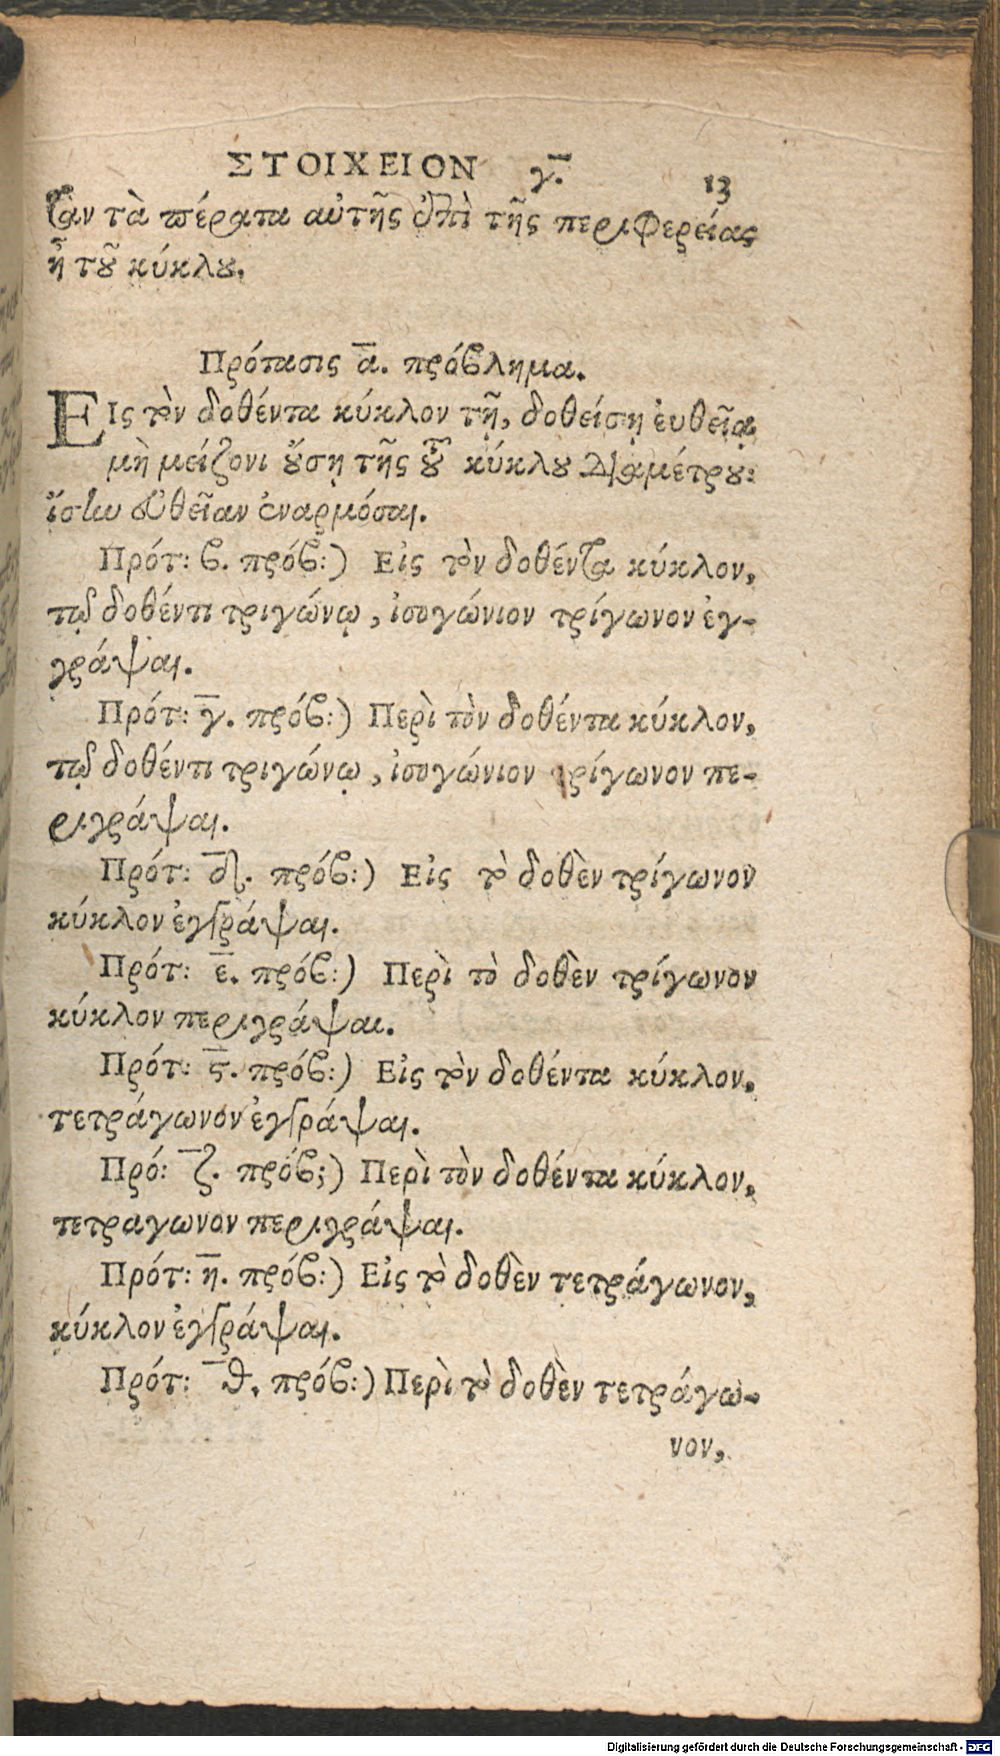 ΣΤΟΙΧΕΙΟΝ γ̄. 13
ταν τὰ πέρατα αὐτῆς ἐπὶ τῆς περιφερείας
ᾖ τοῦ κύκλου.
Πρότασις ᾱ. πρόβλημα.
ΕΙς τὸν δοθέντα κύκλον τῇ, δοθείσῃ ἐυθεῖᾳ
μὴ μείζονι ὄυσῃ τῆς τοῦ κύκλου Διαμέτρου:
ἴσην εὐθεῖαν ἐναρμόσαι.
Πρότ: β. πρόβ:) Εἰς τὸν δοθέντα κύκλον,
τῷ δοθέντι τριγώνῳ, ἰσογώνιον τρίγωνον ἐγ-
γράψαι.
Πρότ: γ̄. πρόβ:) Περὶ τὸν δοθέντα κύκλον,
τῷ δοθέντι τριγώνῳ, ἰσογώνιον τρίγωνον πε-
ριγράψαι.
Πρότ: δ̄. πρόβ:) Εἰς τὸ δοθὲν τρίγωνον
κύκλον ἐγγράψαι.
Πρότ: ε̄. πρόβ:) Περὶ τὸ δοθὲν τρίγωνον
κύκλον περιγράψαι.
Πρότ: ϛ̄. πρόβ:) Εἰς τὸν δοθέντα κύκλον,
τετράγωνον ἐγγράψαι.
Πρό: ζ̄. πρόβ;) Περὶ τὸν δοθέντα κύκλον,
τετραγωνον περιγράψαι.
Πρότ: η̄. πρόβ:) Εἰς τὸ δοθὲν τετράγωνον,
κύκλον ἐγγράψαι.
Πρότ: θ̄. πρόβ:) Περὶ τὸ δοθὲν τετράγω-
νον,
Digitalisierung gefördert durch die Deutsche Forschungsgemeinschaft - DFG